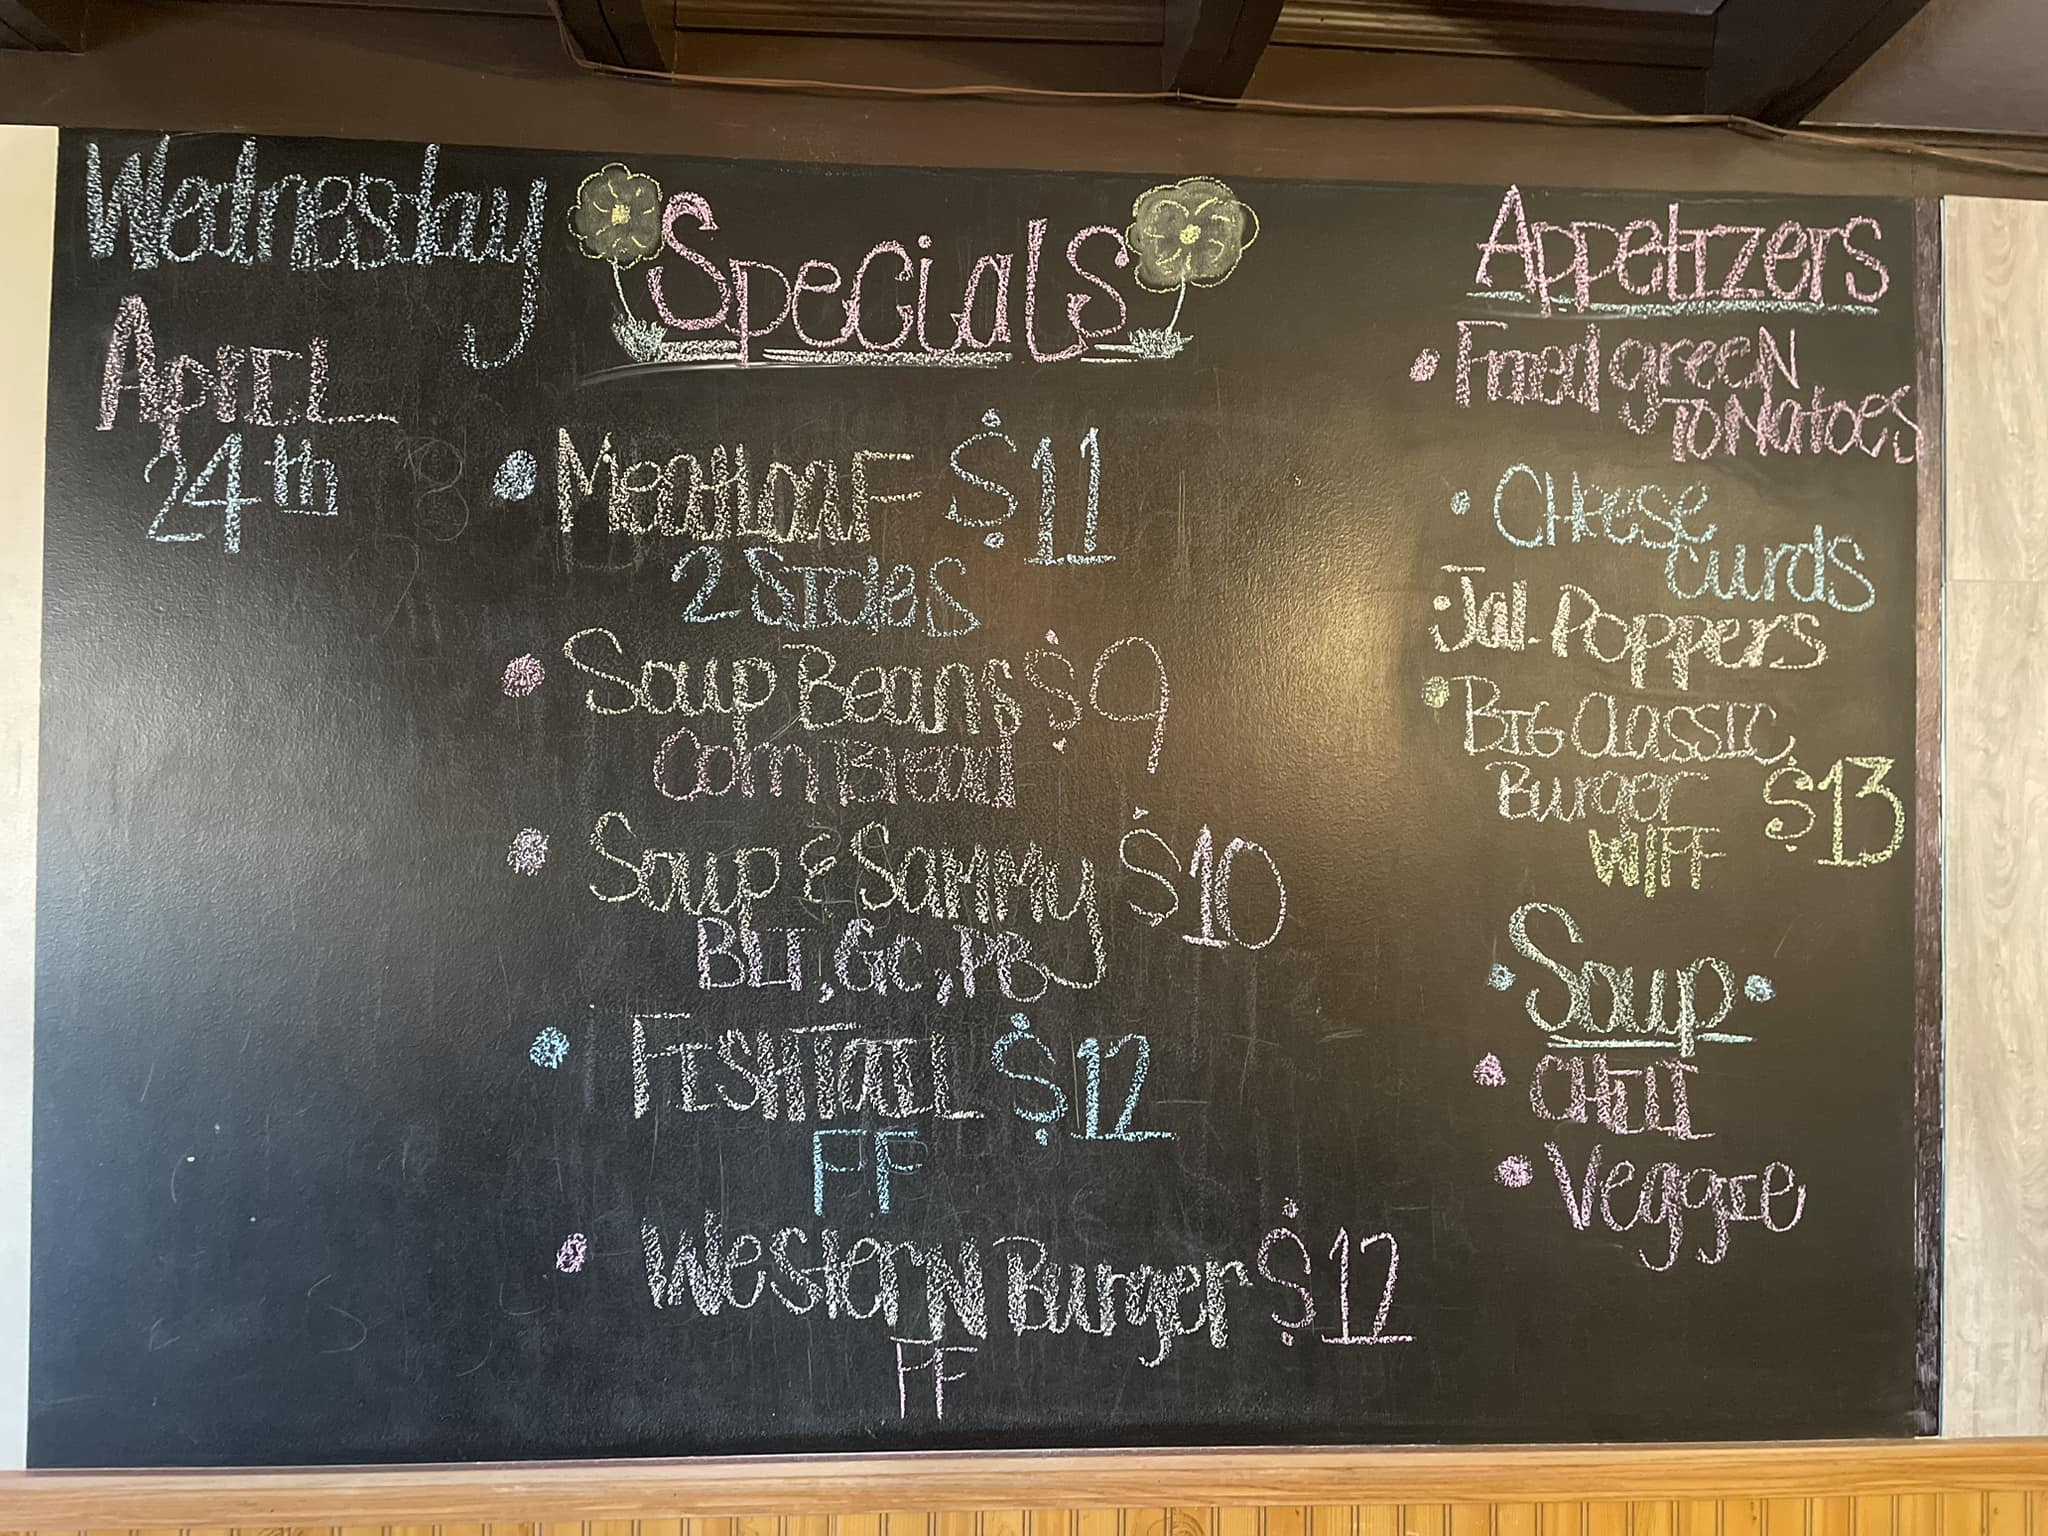 Wednesday
April
24th
Specials
Meatloaf $11
2 Sides
Soup Beans $9
Corn Bread
Soup & Sammy $10
BLT, GC, PB
Fishtail $12
FF
Western Burger $12
FF
Appetizers
Fried green
Tomatoes
Cheese
curds
Jal. Poppers
Big Classic
Burger $13
W/FF
Soup
Chili
Veggie